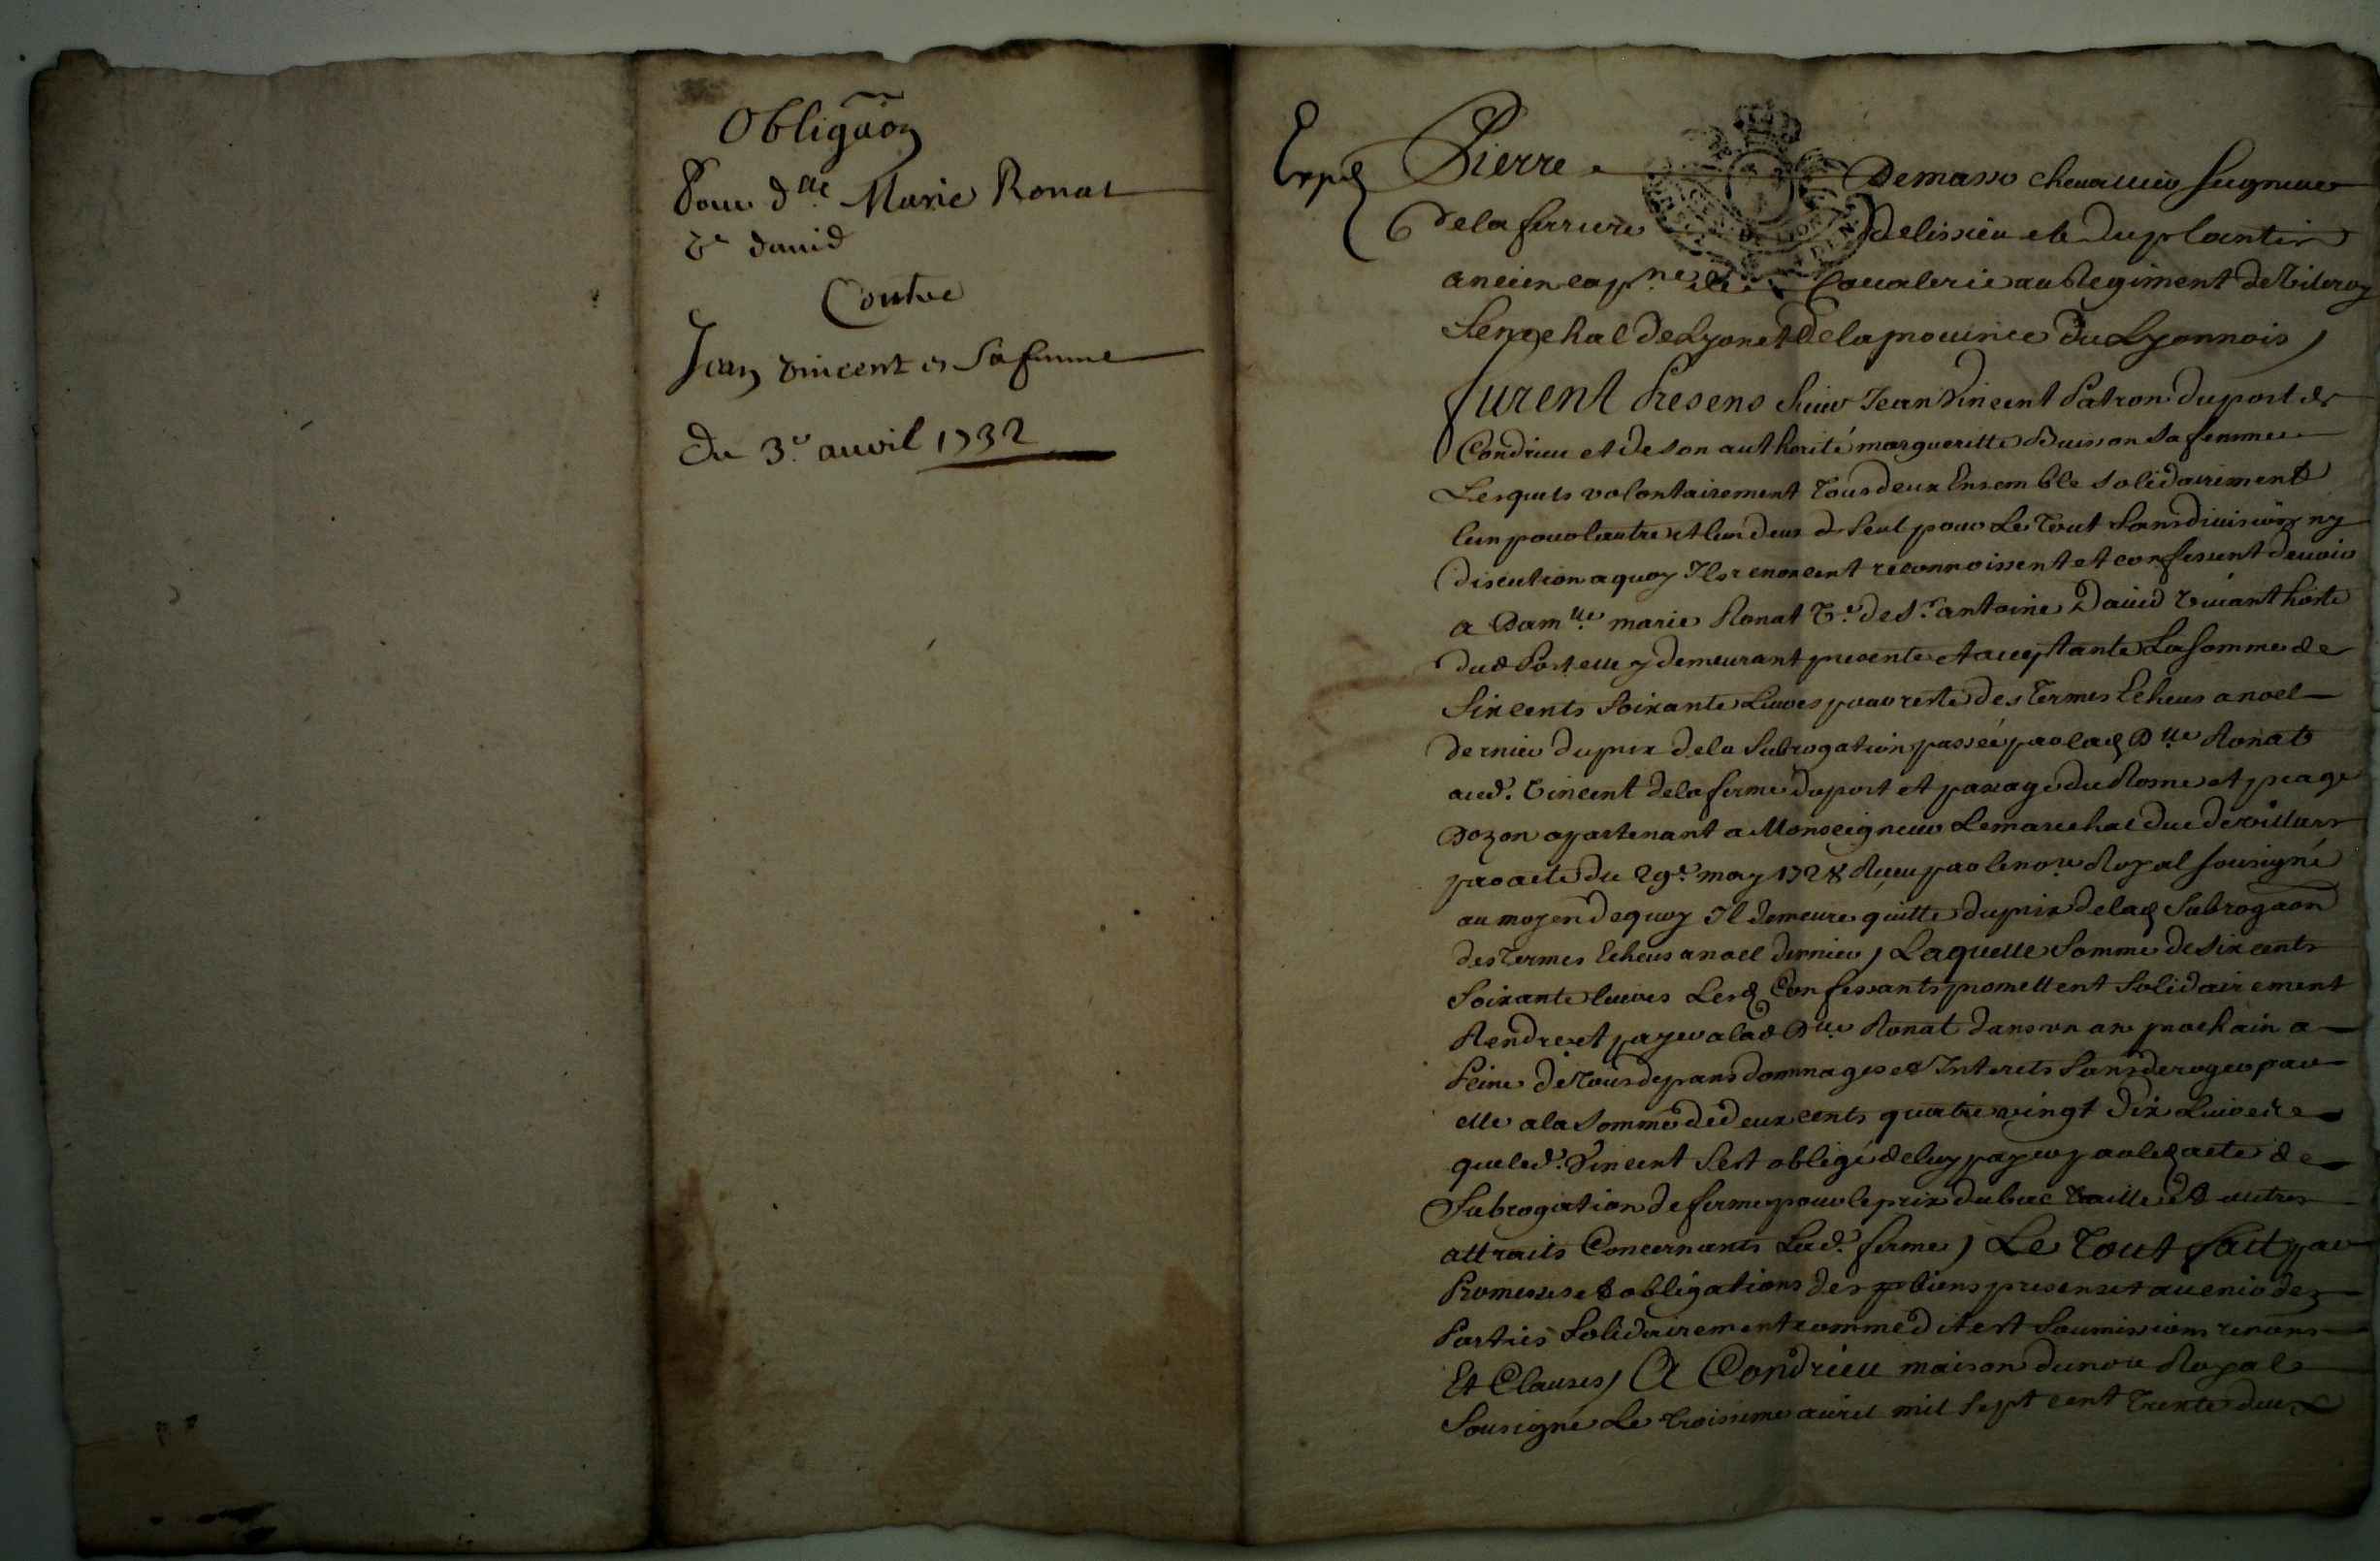 Obligãon
Pour d.lle Marie Ronat
v.e david
Contre
Jean vincent et Sa femme
Du 3.e auril 1732
Exp.é
Pierre Demasso cheuallier Seigneur
de la ferriere delissieu et Duplantin
ancien cap.ne de Caualerie au Regiment de Villeroy
Senechal de Lyon et de la prouince du Lyonnois,
furent Presens Sieur Jean Vincent Patron du port de
Condrieu et de son authorité margueritte Buisson sa femme
Lesquels volontairement Tous deux Ensemble solidairement
lun pour lautre et lun deux d Seul pour Le Tout Sans diuision ny
discution a quoy Ils renoncent reconnoissent et confessent deuoir
a Dam.lle marie Ronat V.e de S.r antoine Dauid viuant hoste
dud Port elle y demeurant presente et acceptante La somme de
Six cents Soixante Liures pour reste des Termes Echeus a noel
dernier du prix de la Subrogation passée par lad D.lle Ronat
aud. Vincent de la ferme du port et passage du Rosne et peage
Dozon apartenant a Monseigneur Le marechal duc de villars
par acte du 29.e may 1728 Receu par le no.re Royal sousigné
au moyen de quoy Il demeure quitte du prix de lad Subrogãon
des Termes Echeus a noel dernier, Laquelle Somme de six cents
Soixante liures Lesd Confessants promettent Solidairement
Rendre et payer a lad D.lle Ronat dans un an prochain a
Peine de Tous depans dommages et Interets Sans deroger par
elle a la Somme de deux cents quatre vingt dix Liures
que led. Vincent Sest obligé de luy payer par led acte de
Subrogation de ferme pour le prix du bac traille et autres
attraits Concernants Lad. ferme, Le Tout fait par
Promesses et obligations des biens presens et auenir des
Parties Solidairement comme dit est Soumissions renons
Et Clauses, A Condrieu maison du no.re Royal
Sousigné Le troisieme auril mil Sept cent Trente deux